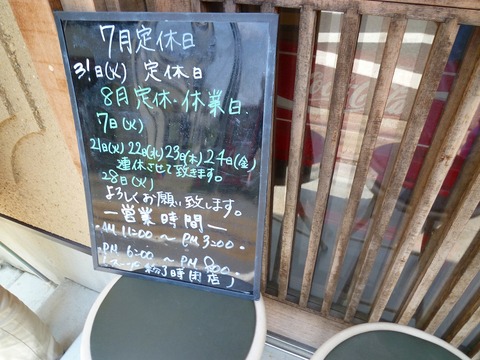 7月定休日
31日(火) 定休日
8月定休・休業日.
7日(火)
21日(火)22日(水)23日(木)24日(金)
連休させて致きます。
28日(火)
よろしくお願い致します。
ー営業時間ー
・AM 11:00 〜 PM 3:00・
・PM 6:00 〜 PM 8:00
Coca-Cola